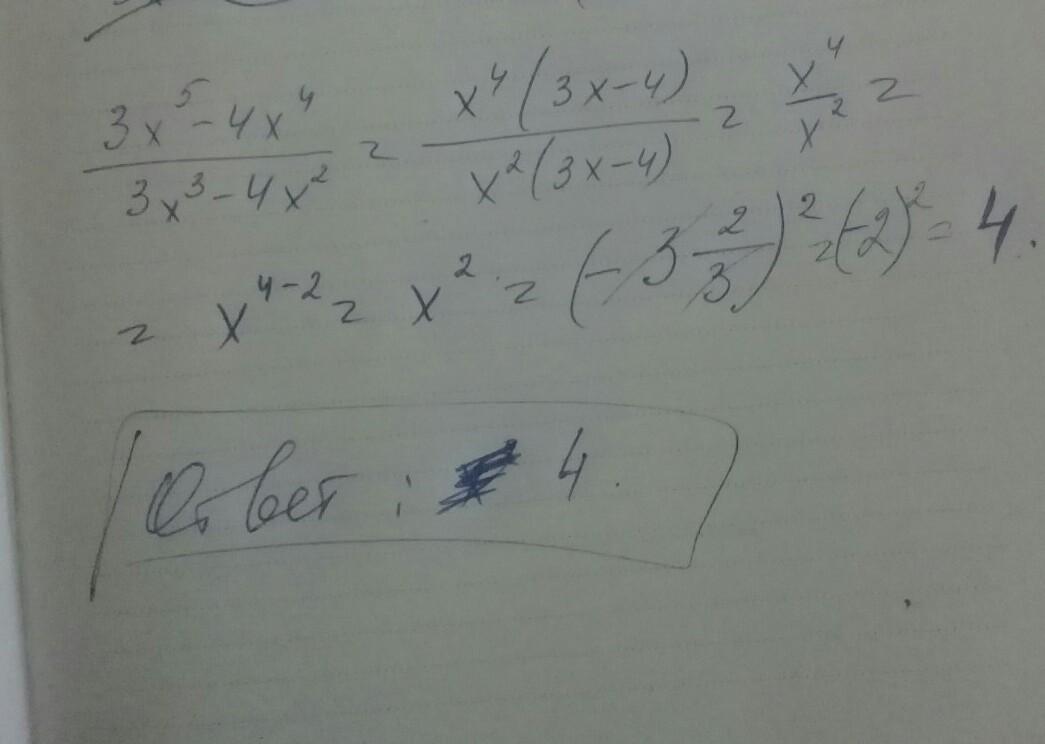 (3x⁵-4x⁴)/(3x³-4x²) = (x⁴(3x-4))/(x²(3x-4)) = x⁴/x² =
= x⁴⁻² = x² = (-3 2/3)² = (-2)² = 4.
Ответ: 4.